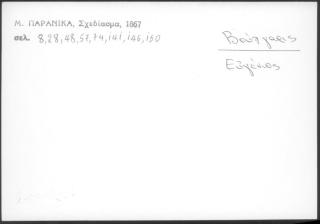 Μ. ΠΑΡΑΝΙΚΑ, Σχεδίασμα, 1867
σελ. 8, 28, 48, 57, 74, 141, 146, 150
Βούλγαρις
Εὐγένιος